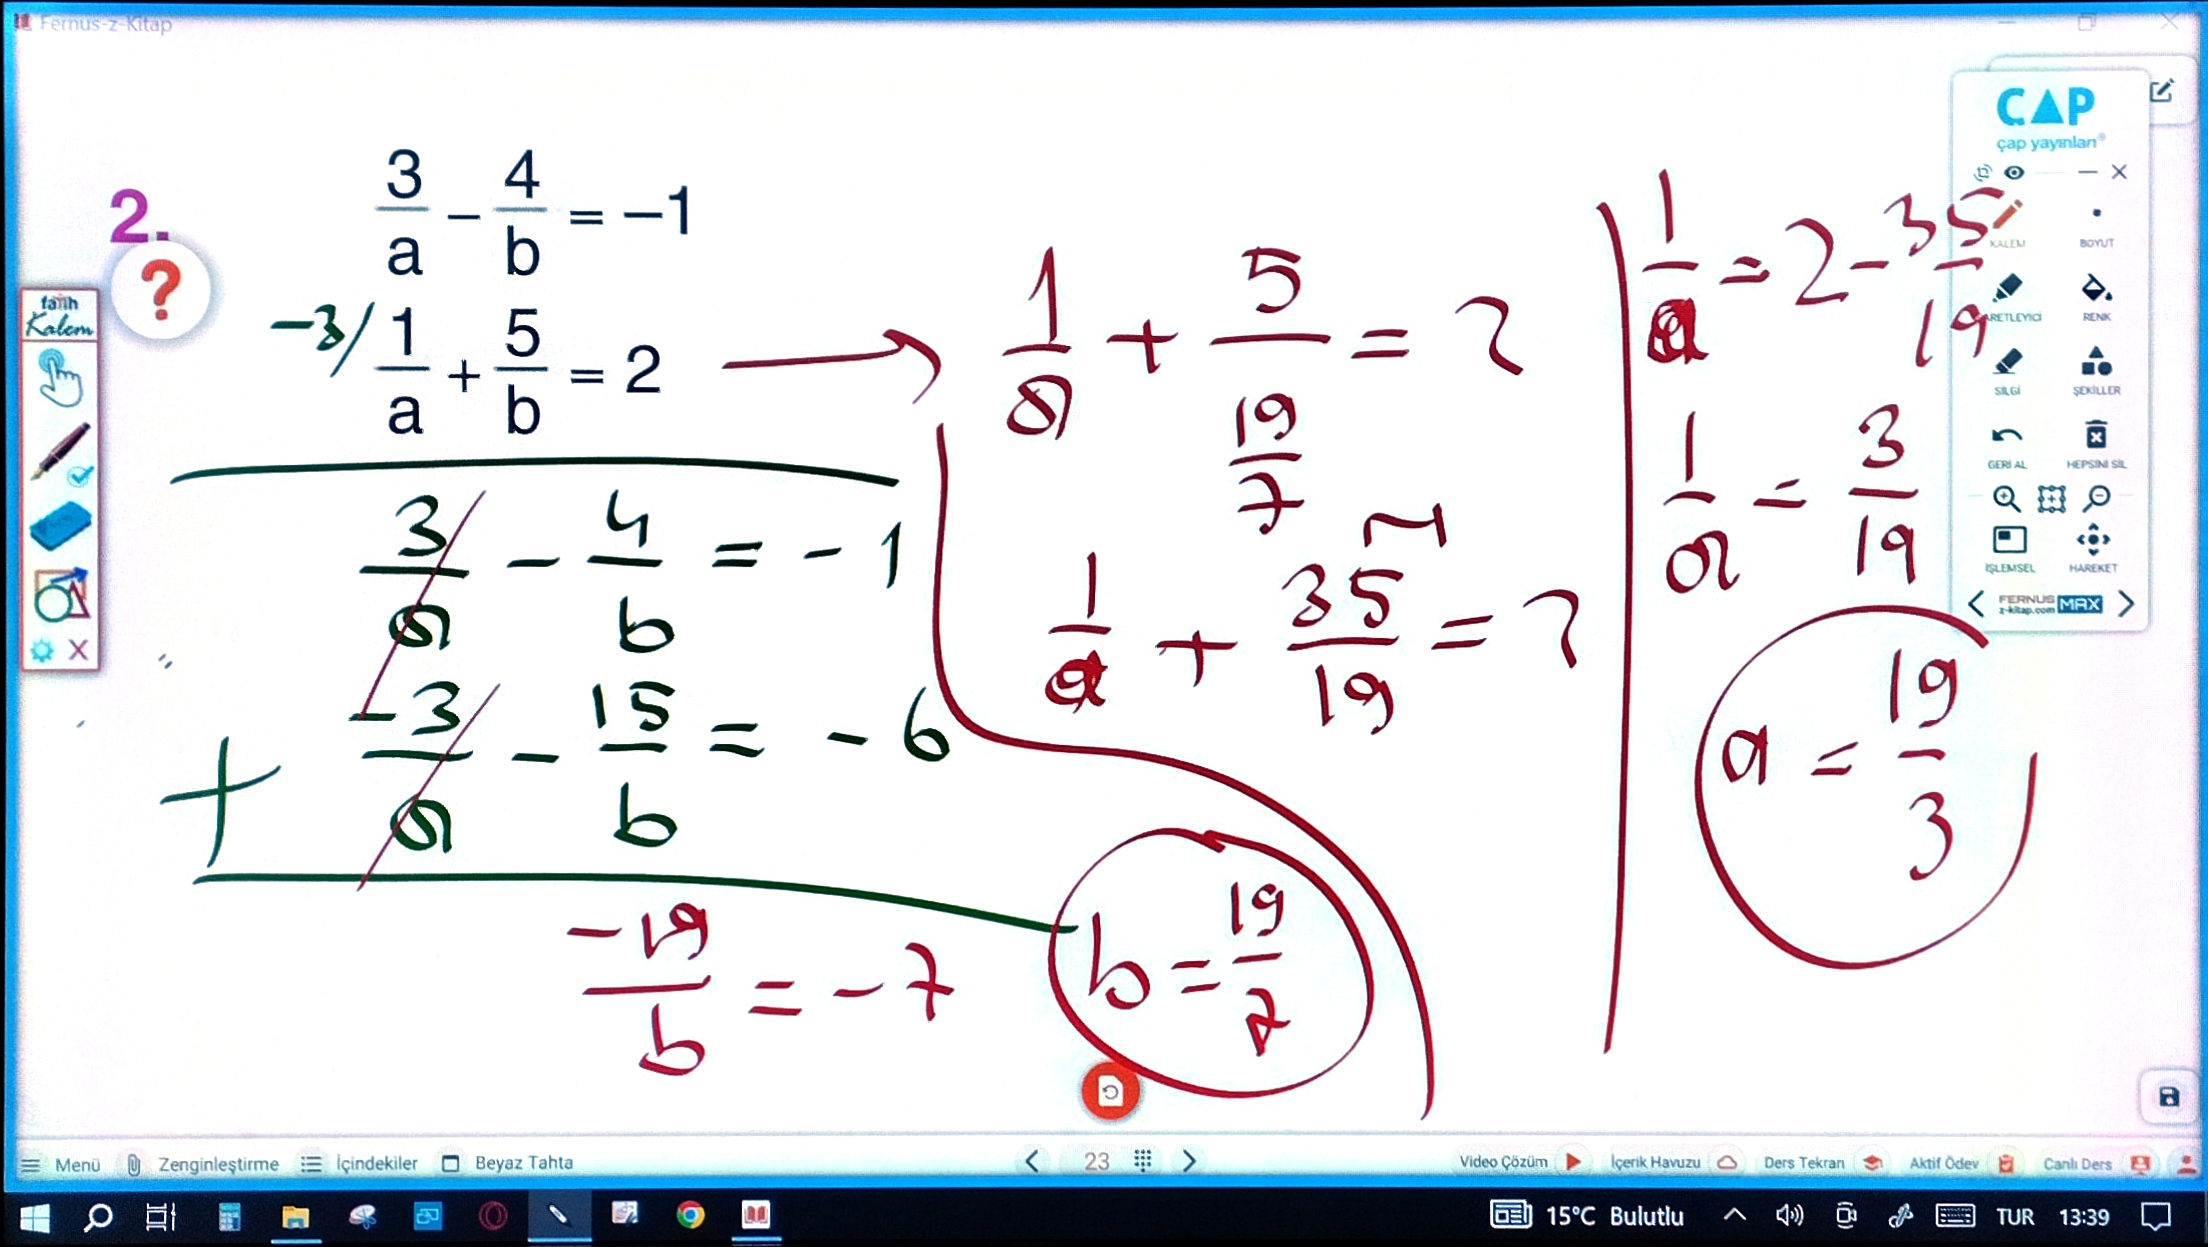 Fernus-z-Kitap
ÇAP
çap yayınları®
2.
?
3/a - 4/b = -1
-3/ 1/a + 5/b = 2
3/a - 4/b = -1
-3/a - 15/b = -6
+
-19/b = -7
b = 19/7
1/a + 5/(19/7) = 2
1/a + 35/19 = 2
1/a = 2 - 35/19
1/a = 3/19
a = 19/3
fatih
Kalem
KALEM
BOYUT
ARETLEYİCİ
RENK
SİLGİ
ŞEKİLLER
GERİ AL
HEPSİNİ SİL
İŞLEMSEL
HAREKET
FERNUS
z-kitap.com MAX
Menü
Zenginleştirme
İçindekiler
Beyaz Tahta
23
Video Çözüm
İçerik Havuzu
Ders Tekran
Aktif Ödev
Canlı Ders
15°C Bulutlu
TUR
13:39